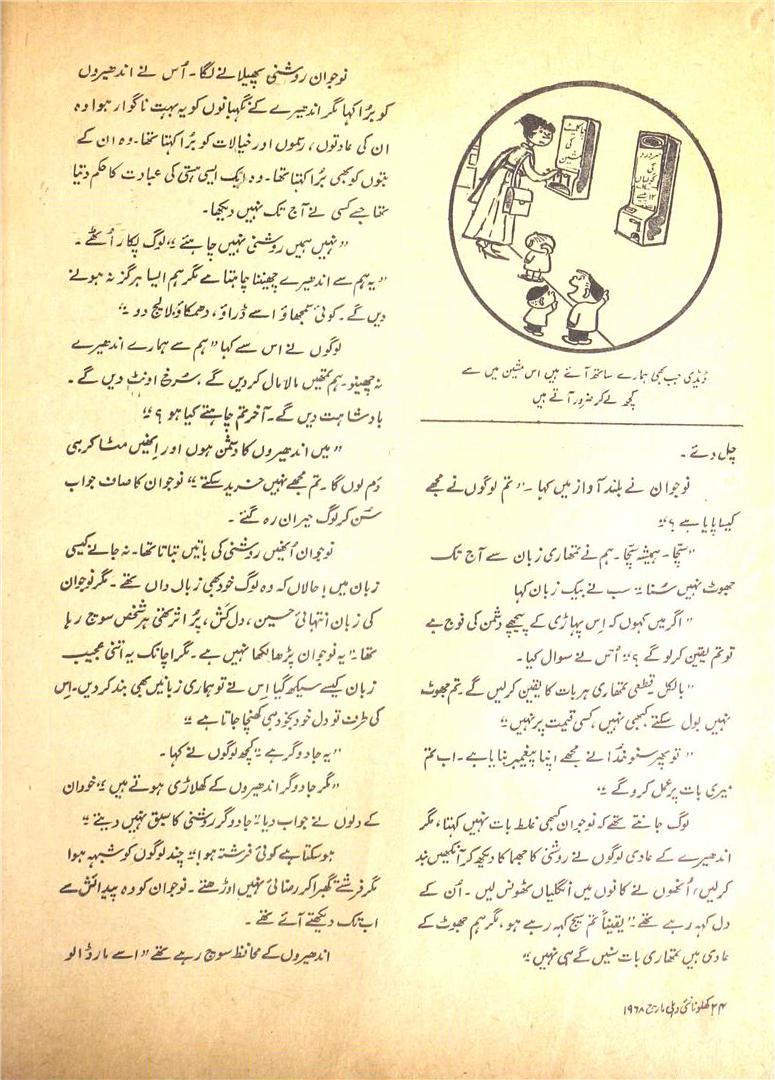 ڈیڈی جب بھی ہمارے ساتھ آتے ہیں اس مشین میں سے
کچھ لے کر ضرور آتے ہیں
چل دئے۔
نوجوان نے بلند آواز میں کہا۔ "تم لوگوں نے مجھے
کیسا پایا ہے؟"
"سچّا۔ ہمیشہ سچّا۔ ہم نے تمھاری زبان سے آج تک
جھوٹ نہیں سُنا" سب نے بیک زبان کہا
"اگر میں کہوں کہ اِس پہاڑی کے پیچھے دشمن کی فوج ہے
تو تم یقین کر لو گے؟" اُس نے سوال کیا۔
"بالکل قطعی تمھاری ہر بات کا یقین کر لیں گے۔ تم جھوٹ
نہیں بول سکتے کبھی نہیں، کسی قیمت پر نہیں"
"تو پھر سنو خُدا نے مجھے اپنا پیغمبر بنایا ہے۔ اب تم
میری بات پر عمل کرو گے"
لوگ جانتے تھے کہ نوجوان کبھی غلط بات نہیں کہتا، مگر
اندھیرے کے عادی لوگوں نے روشنی کا جھماکا دیکھ کر آنکھیں بند
کر لیں، اُنھوں نے کانوں میں انگلیاں ٹھونس لیں۔ اُن کے
دل کہہ رہے تھے "یقیناً تم سچ کہہ رہے ہو، مگر ہم جھوٹ کے
عادی ہیں تمھاری بات سنیں گے ہی نہیں"
نوجوان روشنی پھیلانے لگا۔ اُس نے اندھیروں
کو بُرا کہا مگر اندھیرے کے نگہبانوں کو یہ بہت ناگوار ہوا وہ
ان کی عادتوں، رسموں اور خیالات کو بُرا کہتا تھا۔ وہ ان کے
بتوں کو بھی بُرا کہتا تھا۔ وہ ایک ایسی ہستی کی عبادت کا حکم دیتا
تھا جسے کسی نے آج تک نہیں دیکھا۔
"نہیں ہمیں روشنی نہیں چاہئے" لوگ پکار اُٹھے۔
"یہ ہم سے اندھیرے چھیننا چاہتا ہے مگر ہم ایسا ہرگز نہ ہونے
دیں گے۔ کوئی سمجھاؤ اسے ڈراؤ، دھمکاؤ، لالچ دو"
لوگوں نے اس سے کہا "ہم سے ہمارے اندھیرے
نہ چھینو۔ ہم تمھیں مالا مال کر دیں گے، سُرخ اونٹ دیں گے۔
بادشاہت دیں گے۔ آخر تم چاہتے کیا ہو؟"
"میں اندھیروں کا دشمن ہوں اور اِنھیں مٹا کر ہی
دَم لوں گا۔ تم مجھے نہیں خرید سکتے" نوجوان کا صاف جواب
سُن کر لوگ حیران رہ گئے۔
نوجوان اُنھیں روشنی کی باتیں بتاتا تھا۔ نہ جانے کیسی
زبان میں! حالاں کہ وہ لوگ خود بھی زباں داں تھے۔ مگر نوجوان
کی زبان انتہائی حسین، دل کش، پُر اثر تھی ہر شخص سوچ رہا
تھا۔ "یہ نوجوان پڑھا لکھا نہیں ہے۔ مگر اچانک یہ اتنی عجیب
زبان کیسے سیکھ گیا اِس نے تو ہماری زبانیں بھی بند کر دیں۔ اِس
کی طرف تو دل خود بخود ہی کھنچا جاتا ہے"
"یہ جادوگر ہے" کچھ لوگوں نے کہا۔
"مگر جادوگر اندھیروں کے کھلاڑی ہوتے ہیں" خود ان
کے دلوں نے جواب دیا "جادوگر روشنی کا سبق نہیں دیتے"
ہو سکتا ہے کوئی فرشتہ ہو!" چند لوگوں کو شبہہ ہوا
مگر فرشتے گھبرا کر رضائی نہیں اوڑھتے۔ نوجوان کو وہ پیدائش سے
اب تک دیکھتے آئے تھے۔
اندھیروں کے محافظ سوچ رہے تھے "اسے مار ڈالو
۲۴ کھلونا نئی دہلی مارچ ۱۹۶۸